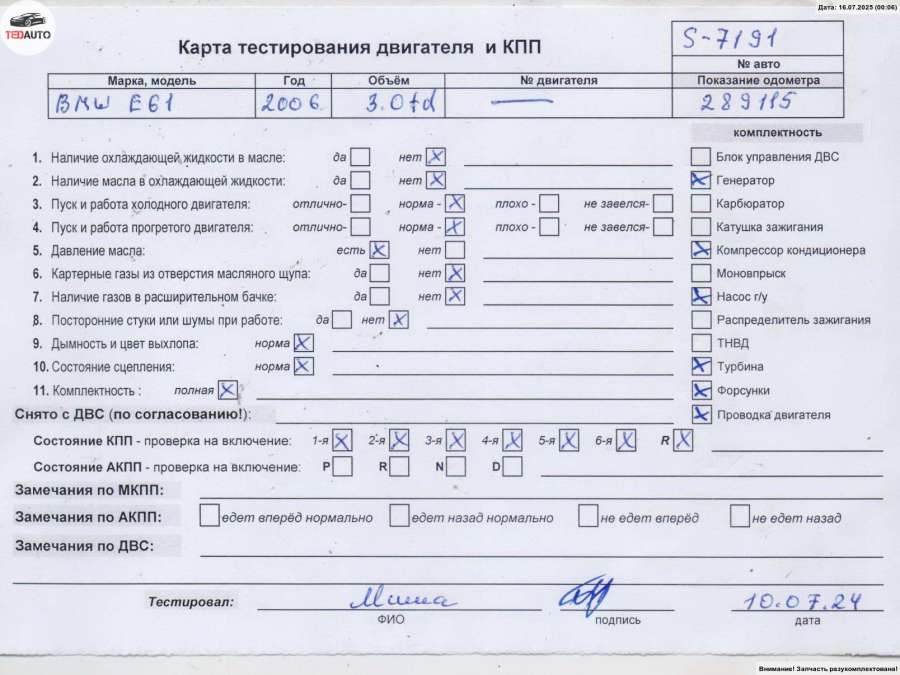 Дата: 16.07.2025 (00:06)
TEDAUTO
Карта тестирования двигателя и КПП
S-7191
№ авто
Марка, модель Год Объём № двигателя Показание одометра
BMW E61 2006 3.0td — 289115
комплектность
1. Наличие охлаждающей жидкости в масле: да нет X
Блок управления ДВС
2. Наличие масла в охлаждающей жидкости: да нет X
X Генератор
3. Пуск и работа холодного двигателя: отлично- норма - X плохо - не завелся-
Карбюратор
4. Пуск и работа прогретого двигателя: отлично- норма - X плохо - не завелся-
Катушка зажигания
5. Давление масла: есть X нет
X Компрессор кондиционера
6. Картерные газы из отверстия масляного щупа: да нет X
Моновпрыск
7. Наличие газов в расширительном бачке: да нет X
X Насос г/у
8. Посторонние стуки или шумы при работе: да нет X
Распределитель зажигания
9. Дымность и цвет выхлопа: норма X
ТНВД
10. Состояние сцепления: норма X
X Турбина
11. Комплектность : полная X
X Форсунки
Снято с ДВС (по согласованию!):
X Проводка двигателя
Состояние КПП - проверка на включение: 1-я X 2-я X 3-я X 4-я X 5-я X 6-я X R X
Состояние АКПП - проверка на включение: P R N D
Замечания по МКПП:
Замечания по АКПП: едет вперёд нормально едет назад нормально не едет вперёд не едет назад
Замечания по ДВС:
Тестировал: Миша 10.07.24
ФИО подпись дата
Внимание! Запчасть разукомплектована!